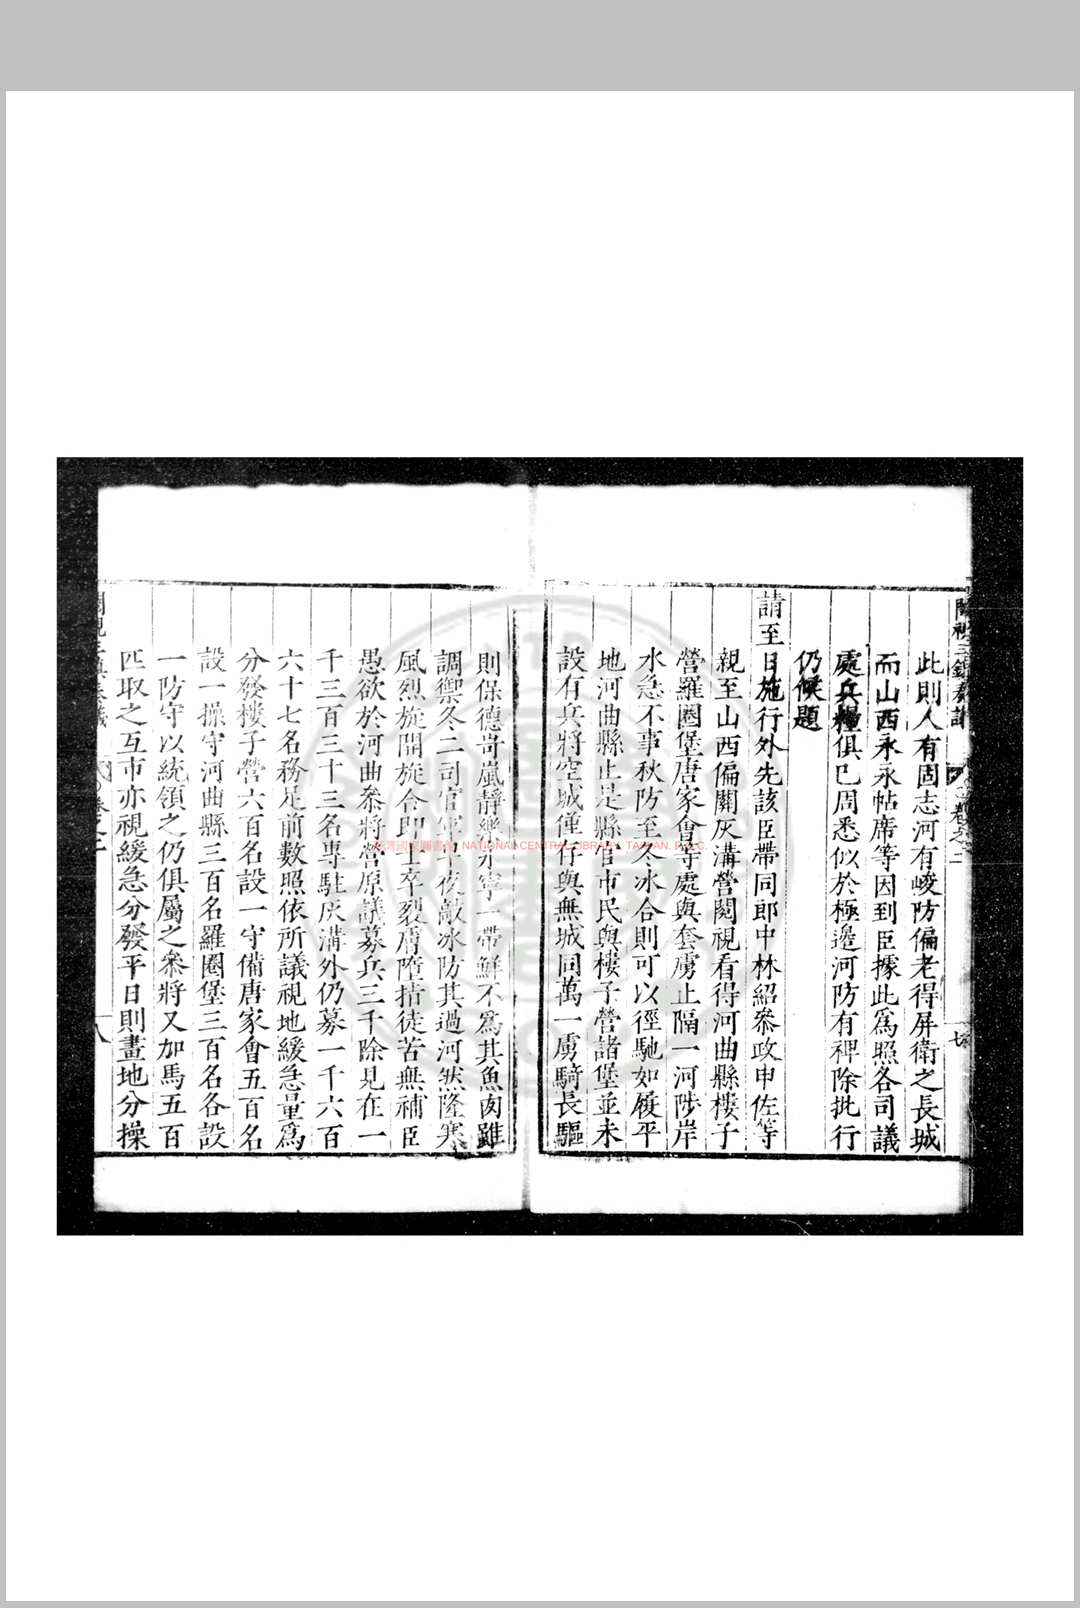 閱視三鎮奏議
卷之二
七
此則人有固志河有峻防偏老得屏衛之長城
而山西永永帖席等因到臣據此爲照各司議
處兵糧俱已周悉似於極邊河防有裨除批行
仍候題
請至日施行外先該臣帶同郎中林紹叅政申佐等
親至山西偏關灰溝營閱視看得河曲縣樓子
營羅圈堡唐家會等處與套虜止隔一河陟岸
水急不事秋防至冬冰合則可以徑馳如履平
地河曲縣止是縣官市民與樓子營諸堡並未
設有兵將空城僅存與無城同萬一虜騎長驅
則保德岢嵐靜樂永寧一帶鮮不爲其魚肉雖
調禦冬二司官軍半夜敲冰防其過河然隆寒
風烈旋開旋合即士卒裂膚墮指徒苦無補臣
愚欲於河曲叅將營原議募兵三千除見在一
千三百三十三名專駐灰溝外仍募一千六百
六十七名務足前數照依所議視地緩急量爲
分發樓子營六百名設一守備唐家會五百名
設一操守河曲縣三百名羅圈堡三百名各設
一防守以統領之仍俱屬之叅將又加馬五百
匹取之互市亦視緩急分發平日則畫地分操
閱視三鎮奏議
卷之二
八
臺灣國家圖書館 NATIONAL CENTRAL LIBRARY, TAIWAN, R.O.C.